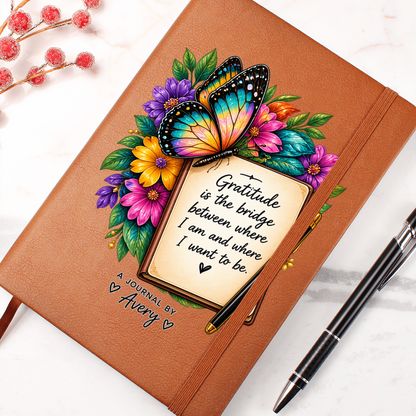 Gratitude
is the bridge
between where
I am and where
I want to be.
A JOURNAL BY
Avery